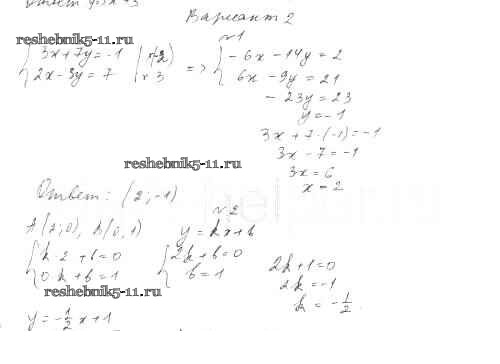 Ответ y=3x+3
Вариант 2
reshebnik5-11.ru
№1
{3x+7y=-1 |·(-2) => {-6x-14y=2
{2x-3y=7 |·3 {6x-9y=21
-23y=23
y=-1
3x+7·(-1)=-1
3x-7=-1
reshebnik5-11.ru
3x=6
x=2
Ответ: (2;-1)
№2
A(2;0), B(0,1) y=kx+b
{k·2+b=0 {2k+b=0
{0·k+b=1 {b=1
2k+1=0
2k=-1
k=-1/2.
reshebnik5-11.ru
y=-1/2x+1